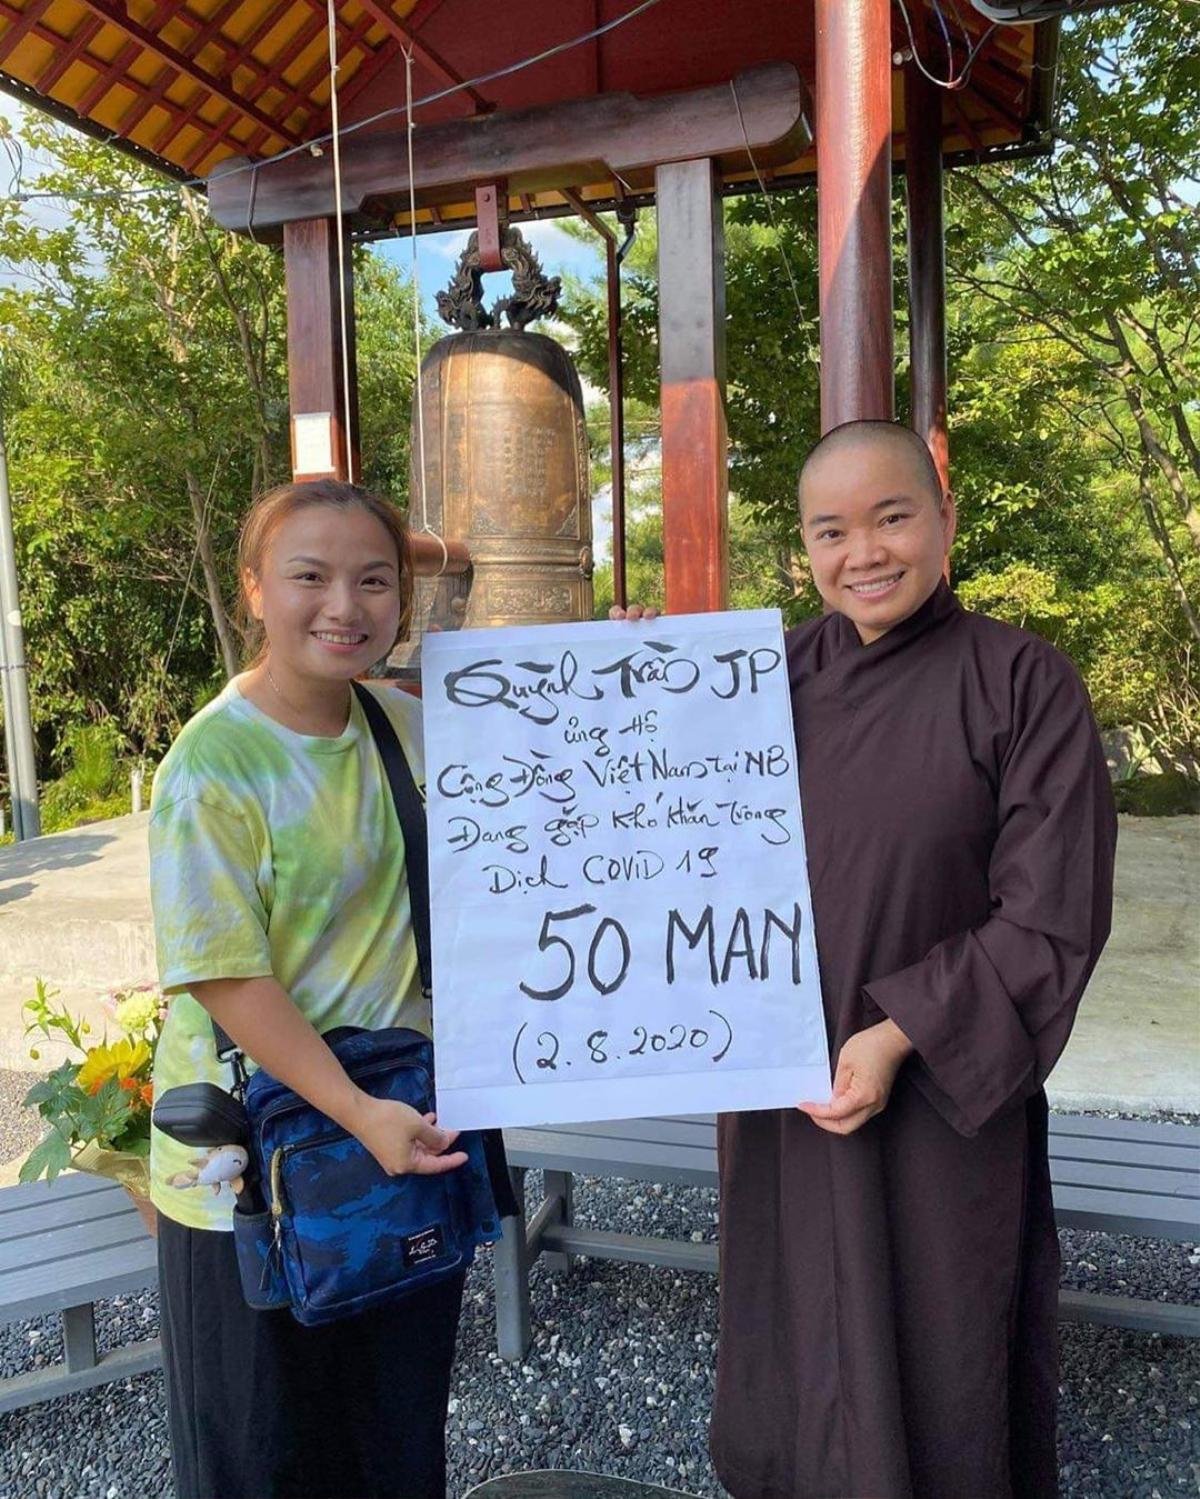 Quỳnh Trần JP
ủng Hộ
Cộng Đồng Việt Nam tại NB
Đang gặp Khó Khăn Trong
Dịch COVID 19
50 MAN
(2.8.2020)